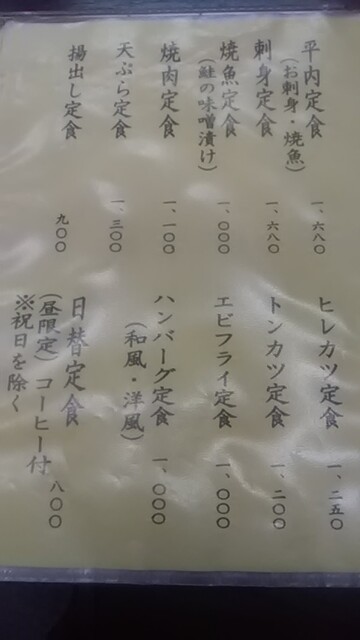 平内定食
(お刺身・焼魚)
一、六八〇
刺身定食
一、六八〇
焼魚定食
(鮭の味噌漬け)
一、〇〇〇
焼肉定食
一、一〇〇
天ぷら定食
一、三〇〇
揚出し定食
九〇〇
ヒレカツ定食
一、二五〇
トンカツ定食
一、二〇〇
エビフライ定食
一、〇〇〇
ハンバーグ定食
(和風・洋風)
一、〇〇〇
日替定食
(昼限定) コーヒー付
※祝日を除く
八〇〇